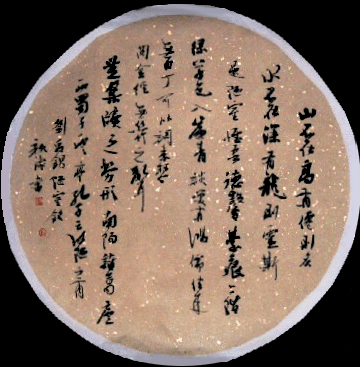 山不在高有僊則名
水不在深有龍則靈斯
是陋室惟吾德馨苔痕上階
綠草色入簾青談笑有鴻儒往來
無白丁可以調素琴
閱金經無絲竹之亂耳
無案牘之勞形南陽諸葛廬
西蜀子雲亭孔子云何陋之有
劉禹錫陋室銘
書